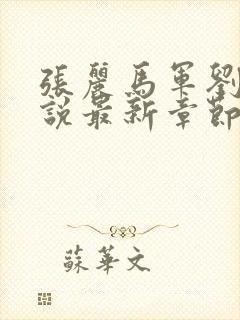 張麗馬軍劉
說最新章節
蘇華文